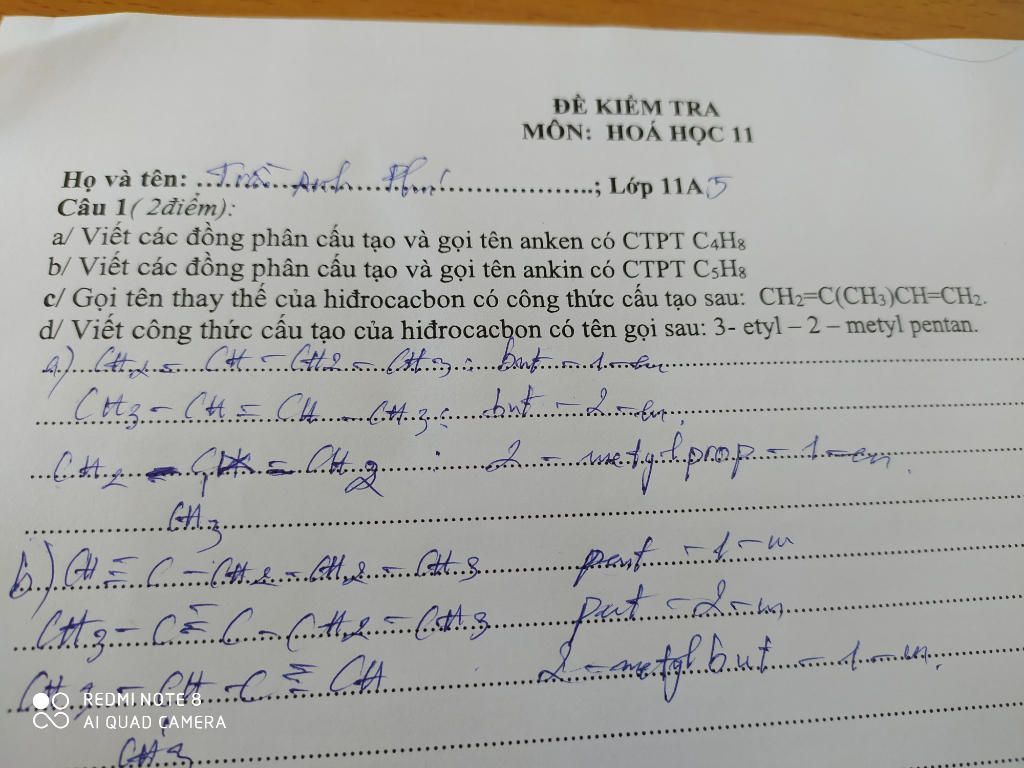 ĐỀ KIỂM TRA
MÔN: HOÁ HỌC 11
Họ và tên: Trần Anh Phú; Lớp 11A5
Câu 1( 2điểm):
a/ Viết các đồng phân cấu tạo và gọi tên anken có CTPT C₄H₈
b/ Viết các đồng phân cấu tạo và gọi tên ankin có CTPT C₅H₈
c/ Gọi tên thay thế của hiđrocacbon có công thức cấu tạo sau: CH₂=C(CH₃)CH=CH₂.
d/ Viết công thức cấu tạo của hiđrocacbon có tên gọi sau: 3- etyl – 2 – metyl pentan.
a) CH₂ = CH - CH₂ - CH₃ : but - 1 - en
CH₃ - CH = CH - CH₃ : but - 2 - en
CH₂ = C - CH₃ : 2 - metyl prop - 1 - en
CH₃
b) CH ≡ C - CH₂ - CH₂ - CH₃ pent - 1 - in
CH₃ - C ≡ C - CH₂ - CH₃ pent - 2 - in
CH₃ - CH - C ≡ CH 2 - metyl but - 1 - in.
CH₃
REDMI NOTE 8
AI QUAD CAMERA